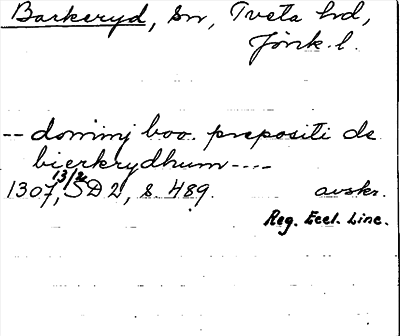 Barkeryd, Sn, Tveta hd,
Jönk. l.
-- dominj boo. prepositi de
bierkrydhum ----
1307 13/2, SD 2, s. 489. avskr.
Reg. Eccl. Linc.